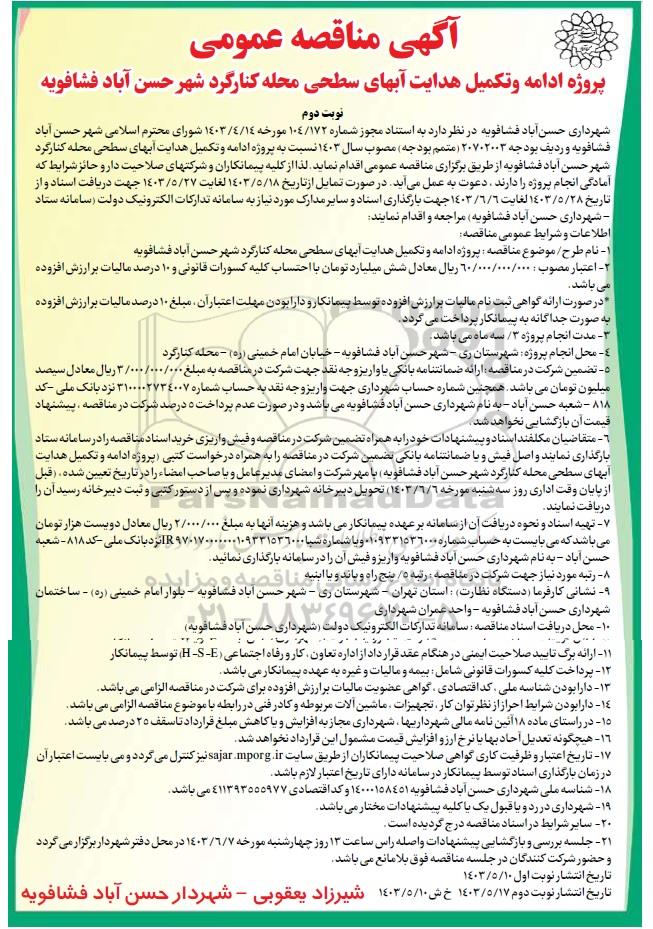 آگهی مناقصه عمومی
پروژه ادامه وتکمیل هدایت آبهای سطحی محله کنارگرد شهر حسن آباد فشافویه
نوبت دوم
شهرداری حسن آباد فشافویه در نظر دارد به استناد مجوز شماره ۱۰۴/۱۷۲ مورخه ۱۴۰۳/۴/۱۴ شورای محترم اسلامی شهر حسن آباد
فشافویه و ردیف بودجه ۲۰۷۰۲۰۰۳ (متمم بودجه) مصوب سال ۱۴۰۳ نسبت به پروژه ادامه و تکمیل هدایت آبهای سطحی محله کنارگرد
شهر حسن آباد فشافویه از طریق برگزاری مناقصه عمومی اقدام نماید. لذا از کلیه پیمانکاران و شرکتهای صلاحیت دار و حائز شرایط که
آمادگی انجام پروژه را دارند ، دعوت به عمل می آید . در صورت تمایل از تاریخ ۱۴۰۳/۵/۱۸ لغایت ۱۴۰۳/۵/۲۷ جهت دریافت اسناد و از
تاریخ ۱۴۰۳/۵/۲۸ لغایت ۱۴۰۳/۶/۶ جهت بارگذاری اسناد و سایر مدارک مورد نیاز به سامانه تدارکات الکترونیک دولت (سامانه ستاد
- شهرداری حسن آباد فشافویه) مراجعه و اقدام نمایند:
اطلاعات و شرایط عمومی مناقصه:
۱- نام طرح/ موضوع مناقصه : پروژه ادامه و تکمیل هدایت آبهای سطحی محله کنارگرد شهر حسن آباد فشافویه
۲- اعتبار مصوب : ۶۰/۰۰۰/۰۰۰/۰۰۰ ریال معادل شش میلیارد تومان با احتساب کلیه کسورات قانونی و ۱۰ درصد مالیات بر ارزش افزوده
می باشد.
*در صورت ارائه گواهی ثبت نام مالیات بر ارزش افزوده توسط پیمانکار و دارا بودن مهلت اعتبار آن ، مبلغ ۱۰ درصد مالیات بر ارزش افزوده
به صورت جداگانه به پیمانکار پرداخت می گردد.
۳- مدت انجام پروژه /۳ سه ماه می باشد.
۴- محل انجام پروژه : شهرستان ری - شهر حسن آباد فشافویه - خیابان امام خمینی (ره) - محله کنارگرد
۵- تضمین شرکت در مناقصه : ارائه ضمانتنامه بانکی یا واریز وجه نقد جهت شرکت در مناقصه به مبلغ ۳/۰۰۰/۰۰۰/۰۰۰ ریال معادل سیصد
میلیون تومان می باشد. همچنین شماره حساب شهرداری جهت واریز وجه نقد به حساب شماره ۳۱۰۰۰۰۲۷۳۴۰۰۷ نزد بانک ملی - کد
۸۱۸ - شعبه حسن آباد - به نام شهرداری حسن آباد فشافویه می باشد و در صورت عدم پرداخت ۵ درصد شرکت در مناقصه ، پیشنهاد
قیمت آن بازگشایی نخواهد شد.
۶- متقاضیان مکلفند اسناد و پیشنهادات خود را به همراه تضمین شرکت در مناقصه و فیش واریزی خرید اسناد مناقصه را در سامانه ستاد
بارگذاری نمایند و اصل فیش و یا ضمانتنامه بانکی تضمین شرکت در مناقصه را به همراه درخواست کتبی (پروژه ادامه و تکمیل هدایت
آبهای سطحی محله کنارگرد شهر حسن آباد فشافویه) با مهر شرکت و امضای مدیرعامل و یا صاحب امضاء را در تاریخ تعیین شده ، (قبل
از پایان وقت اداری روز سه شنبه مورخه ۱۴۰۳/۶/۶) تحویل دبیرخانه شهرداری نموده و پس از دستور کتبی و ثبت دبیرخانه رسید آن را
دریافت نمایند.
۷- تهیه اسناد و نحوه دریافت آن از سامانه بر عهده پیمانکار می باشد و هزینه آنها به مبلغ ۲/۰۰۰/۰۰۰ ریال معادل دویست هزار تومان
می باشد که می بایست به حساب شماره ۰۱۰۹۳۳۱۵۳۶۰۰۰ و یا شماره شبا نزد بانک ملی - کد ۸۱۸ - شعبه
حسن آباد - به نام شهرداری حسن آباد فشافویه واریز و فیش آن را در سامانه بارگذاری نمائید.
۸- رتبه مورد نیاز جهت شرکت در مناقصه : رتبه /۵ پنج راه و باند و یا ابنیه
۹- نشانی کارفرما (دستگاه نظارت) : استان تهران - شهرستان ری - شهر حسن آباد فشافویه - بلوار امام خمینی (ره) - ساختمان
شهرداری حسن آباد فشافویه - واحد عمران شهرداری
۱۰- محل دریافت اسناد مناقصه : سامانه تدارکات الکترونیک دولت (شهرداری حسن آباد فشافویه)
۱۱- ارائه برگ تایید صلاحیت ایمنی در هنگام عقد قرارداد از اداره تعاون ، کار و رفاه اجتماعی (H-S-E) توسط پیمانکار
۱۲- پرداخت کلیه کسورات قانونی شامل : بیمه و مالیات و غیره به عهده پیمانکار می باشد.
۱۳- دارا بودن شناسه ملی ، کد اقتصادی ، گواهی عضویت مالیات بر ارزش افزوده برای شرکت در مناقصه الزامی می باشد.
۱۴- دارا بودن شرایط احراز از نظر توان کار ، تجهیزات ، ماشین آلات مربوطه و کادر فنی در رابطه با موضوع مناقصه الزامی می باشد.
۱۵- در راستای ماده ۱۸ آئین نامه مالی شهرداریها ، شهرداری مجاز به افزایش و یا کاهش مبلغ قرارداد تا سقف ۲۵ درصد می باشد.
۱۶- هیچگونه تعدیل آحاد بها یا نرخ ارز و افزایش قیمت مشمول این قرارداد نخواهد شد.
۱۷- تاریخ اعتبار و ظرفیت کاری گواهی صلاحیت پیمانکاران از طریق سایت sajar.mporg.ir نیز کنترل می گردد و می بایست اعتبار آن
در زمان بارگذاری اسناد توسط پیمانکار در سامانه دارای تاریخ اعتبار لازم باشد.
۱۸- شناسه ملی شهرداری حسن آباد فشافویه ۱۴۰۰۰۱۵۸۴۵۱ و کد اقتصادی ۴۱۱۳۹۳۵۵۵۹۷۷ می باشد.
۱۹- شهرداری در رد و یا قبول یک یا کلیه پیشنهادات مختار می باشد.
۲۰- سایر شرایط در اسناد مناقصه درج گردیده است.
۲۱- جلسه بررسی و بازگشایی پیشنهادات واصله راس ساعت ۱۳ روز چهارشنبه مورخه ۱۴۰۳/۶/۷ در محل دفتر شهردار برگزار می گردد
و حضور شرکت کنندگان در جلسه مناقصه فوق بلامانع می باشد.
تاریخ انتشار نوبت اول ۱۴۰۳/۵/۱۰
تاریخ انتشار نوبت دوم ۱۴۰۳/۵/۱۷ خ ش ۱۴۰۳/۵/۱۰
شیرزاد یعقوبی - شهردار حسن آباد فشافویه
ParsNamadData